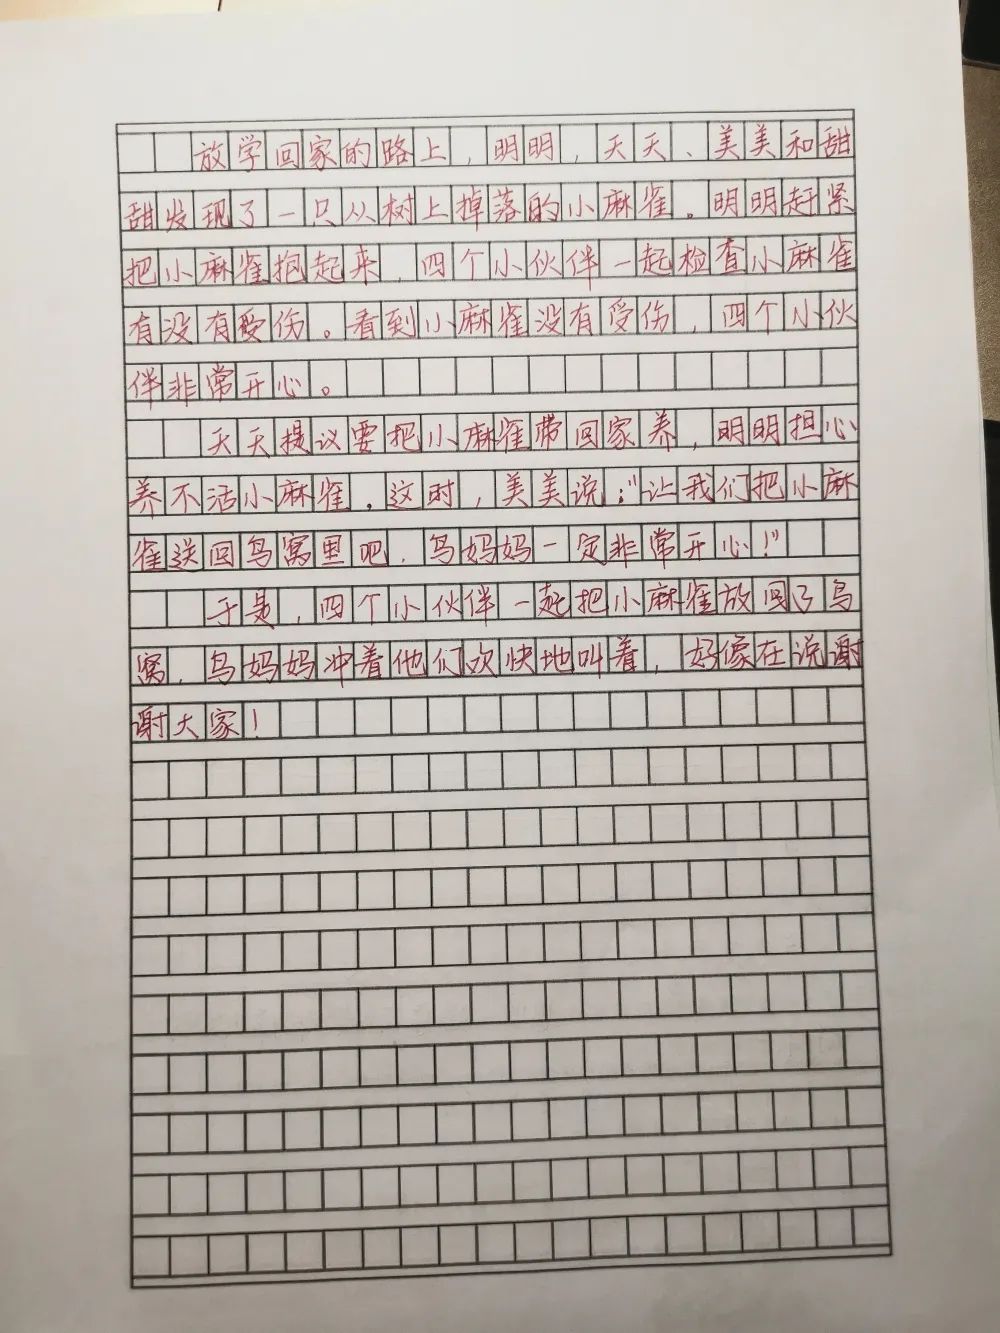 放学回家的路上，明明，天天、美美和甜
甜发现了一只从树上掉落的小麻雀。明明赶紧
把小麻雀抱起来，四个小伙伴一起检查小麻雀
有没有受伤。看到小麻雀没有受伤，四个小伙
伴非常开心。
天天提议要把小麻雀带回家养，明明担心
养不活小麻雀。这时，美美说："让我们把小麻
雀送回鸟窝里吧，鸟妈妈一定非常开心！"
于是，四个小伙伴一起把小麻雀放回了鸟
窝，鸟妈妈冲着他们欢快地叫着，好像在说谢
谢大家！